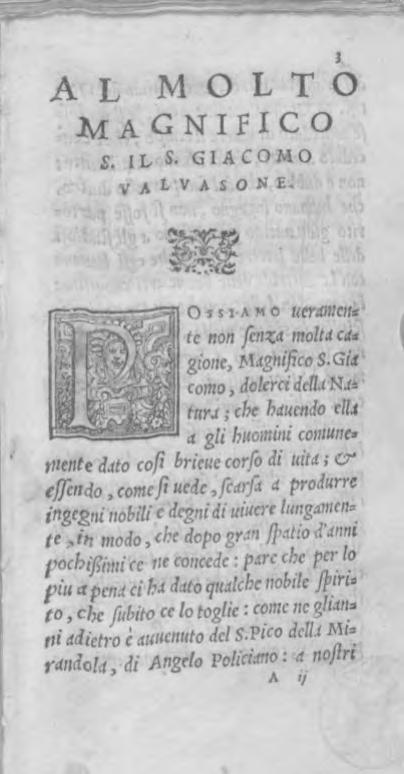 3
AL MOLTO
MAGNIFICO
S. IL S. GIACOMO
VALVASONE.
POSSIAMO ueramen=
te non ſenza molta ca=
gione, Magnifico S. Gia
como, dolerci della Na=
tura; che hauendo ella
a gli huomini comune=
mente dato coſi brieue corſo di uita; &
eſſendo, come ſi uede, ſcarſa a produrre
ingegni nobili e degni di uiuere lungamen=
te, in modo, che dopo gran ſpatio d'anni
pochißimi ce ne concede: pare che per lo
piu a pena ci ha dato qualche nobile ſpiri=
to, che ſubito ce lo toglie: come ne glian=
ni adietro è auuenuto del S. Pico della Mi=
randola, di Angelo Policiano: a noſtri
A ij